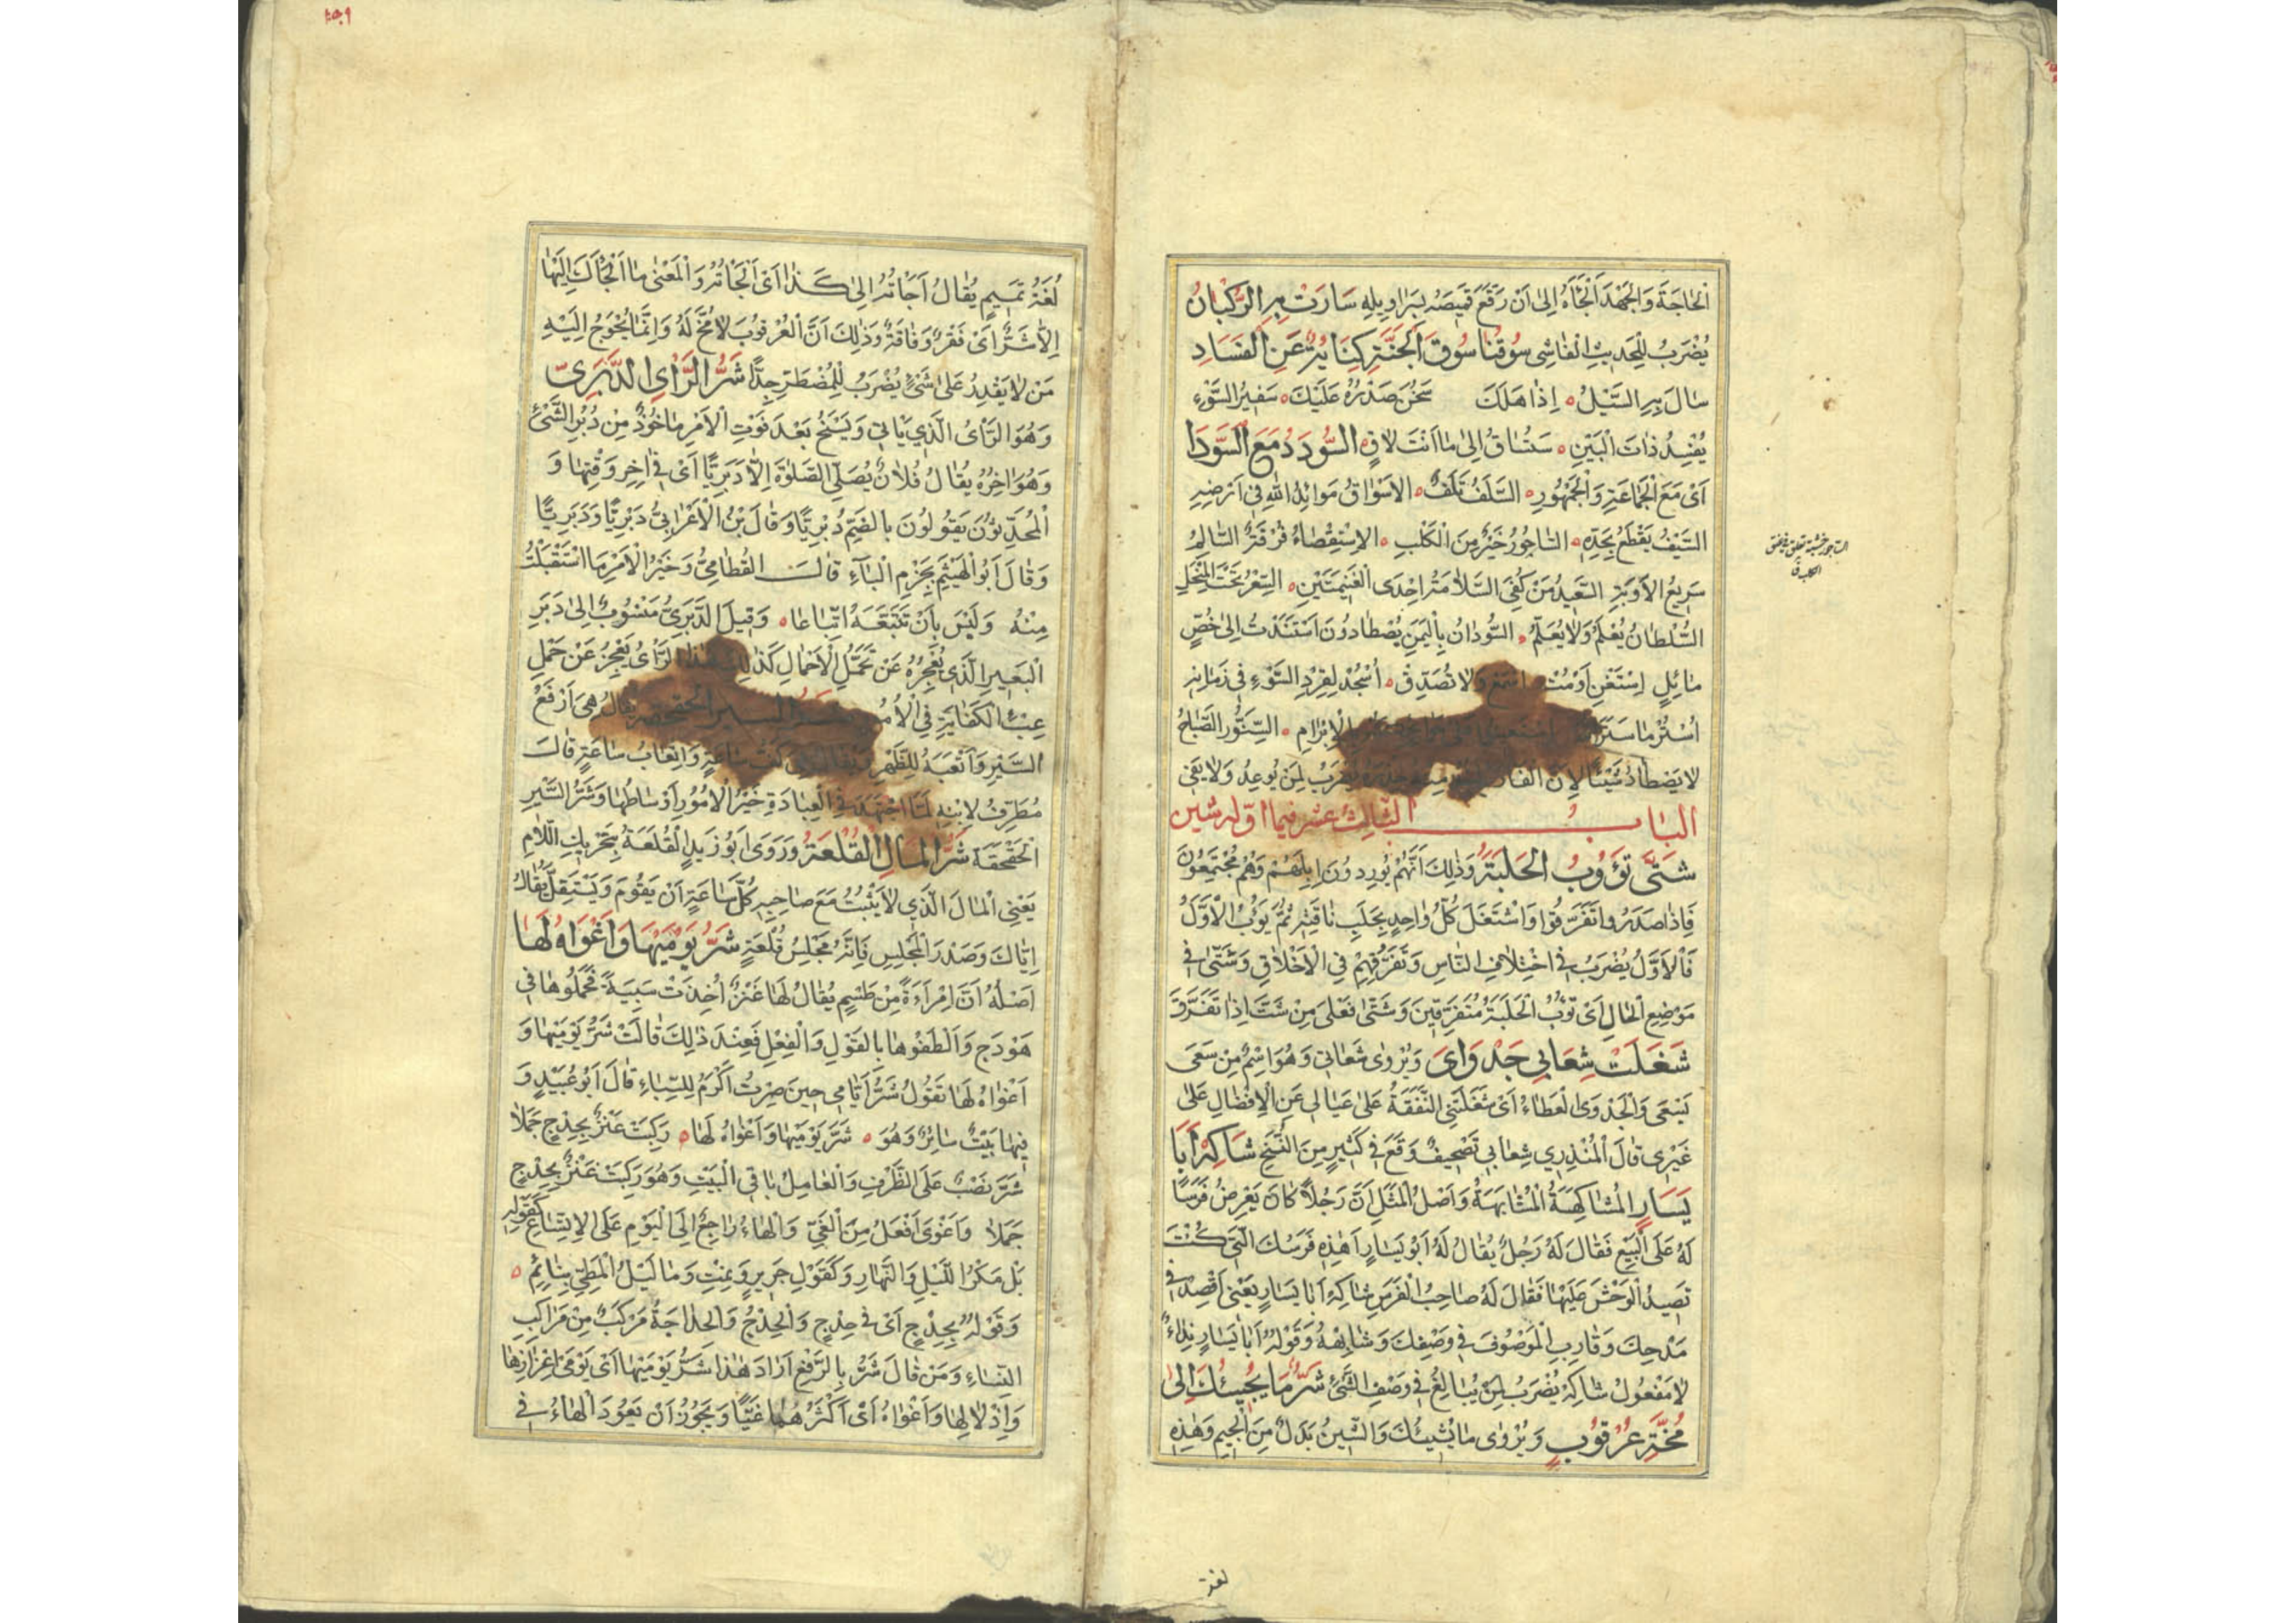 الحَاجَةَ وَالجَهْدَ اَلْجَأَهُ اِلىٰ اَنْ رَقَعَ قَمِيصَهُ بِسَرَاوِيلِهِ سَارَتْ بِهِ الرُّكْبَانُ
يُضْرَبُ لِلْحَدِيثِ الْفَاشِى سُوقُنَا سُوقُ الْجَنَّةِ كِنَايَةٌ عَنِ الفَسَادِ
سَالَ بِهِ السَّيْلُ ٥ اِذَا هَلَكَ سَخُنَ صَدْرُهُ عَلَيْكَ ٥ سَفِيرُ السَّوْءِ
يُفْسِدُ ذَاتَ الْبَيْنِ ٥ سَتُسَاقُ اِلىٰ مَا اَنْتَ لَاقٍ ٥ السُّودَدُ مَعَ السَّوَادِ
اَىْ مَعَ الْجَمَاعَةِ وَالْجُمْهُورِ ٥ السَّلَفُ تَلَفٌ ٥ الاَسْوَاقُ مَوَائِدُ اللهِ فِى اَرْضِهِ
السَّيْفُ يَقْطَعُ بِحَدِّهِ ٥ السَّاجُورُ خَيْرٌ مِنَ الْكَلْبِ ٥ الاِسْتِقْصَاءُ فُرْقَةٌ السَّالِمُ
سَرِيعُ الاَوْبَةِ السَّعِيدُ مَنْ كُفِىَ السَّلَامَةُ اِحْدَى الْغَنِيمَتَيْنِ ٥ السِّعْرُ تَحْتَ الْمِنْجَلِ
السُّلْطَانُ يُعْلَمُ وَلَا يُعَلَّمُ ٥ السُّودَانُ بِالْيَمَنِ يُصْطَادُونَ اسْتَنَدْتُ اِلىٰ خُصٍّ
مَائِلٍ اِسْتَغْنِ اَوْ مُتْ اسْمَعْ وَلَا تُصَدِّقْ ٥ اُسْجُدْ لِقِرْدِ السَّوْءِ فِى زَمَانِهِ
اُسْتُرْ مَا سَتَرَ بِالْاِبْرَامِ ٥ السِّنَّوْرُ الصَّيَّاحُ
لَا يَصْطَادُ شَيْئًا لِاَنَّ الْفَأْرَ يُضْرَبُ لِمَنْ يُوعِدُ وَلَا يَفِى
البَابُ الثَّالِثَ عَشَرَ فِيمَا اَوَّلُهُ شِين
شَتّىٰ تَؤُوبُ الحَلَبَةُ وَذٰلِكَ اَنَّهُمْ يُورِدُونَ اِبِلَهُمْ وَهُمْ مُجْتَمِعُونَ
فَاِذَا صَدَرُوا تَفَرَّقُوا وَاشْتَغَلَ كُلُّ وَاحِدٍ بِحَلْبِ نَاقَتِهِ ثُمَّ يَؤُبُ الْاَوَّلُ
فَالْاَوَّلُ يُضْرَبُ فِى اخْتِلَافِ النَّاسِ وَتَفَرُّقِهِمْ فِى الْاَخْلَاقِ وَشَتّىٰ فِى
مَوْضِعِ الْحَالِ اَىْ تَؤُبُ الْحَلَبَةُ مُتَفَرِّقِينَ وَشَتّىٰ فَعْلىٰ مِنْ شَتَّ اِذَا تَفَرَّقَ
شَغَلَتْ شِعَابِى جَدْوَاىَ وَيُرْوٰى سَعَاتِى وَهُوَ اسْمٌ مِنْ سَعَى
يَسْعَى وَالْجَدْوَى الْعَطَاءُ اَىْ شَغَلَتْنِى النَّفَقَةُ عَلىٰ عِيَالِى عَنِ الْاِفْضَالِ عَلىٰ
غَيْرِى قَالَ الْمُنْذِرِى شِعَابِى تَصْحِيفٌ وَقَعَ فِى كَثِيرٍ مِنَ النُّسَخِ شَاكِهْ اَبَا
يَسَارٍ الْمُشَاكَهَةُ الْمُشَابَهَةُ وَاَصْلُ الْمَثَلِ اَنَّ رَجُلاً كَانَ يَعْرِضُ فَرَسًا
لَهُ عَلَى الْبَيْعِ فَقَالَ لَهُ رَجُلٌ يُقَالُ لَهُ اَبُو يَسَارٍ اَهٰذِهِ فَرَسُكَ الَّتِى كُنْتَ
تَصِيدُ الْوَحْشَ عَلَيْهَا فَقَالَ لَهُ صَاحِبُ الْفَرَسِ شَاكِهْ اَبَا يَسَارٍ يَعْنِى اقْصِدْ فِى
مَدْحِكَ وَقَارِبِ الْمَوْصُوفَ فِى وَصْفِكَ وَشَابِهْهُ وَقَوْلُهُ اَبَا يَسَارٍ نِدَاءٌ
لَا مَفْعُولُ شَاكِهْ يُضْرَبُ لِمَنْ يُبَالِغُ فِى وَصْفِ الشَّىْءِ شَرٌّ مَا يُجِيئُكَ اِلىٰ
مُخَّةِ عُرْقُوبٍ وَيُرْوٰى مَا يُشِيئُكَ وَالشِّينُ بَدَلٌ مِنَ الْجِيمِ وَهٰذِهِ
لغة
الساجور خشبة تعلق فى عنق
الكلب ق
لُغَةُ تَمِيمٍ يُقَالُ اَجَأْتُهُ اِلىٰ كَذَا اَىْ اَلْجَأْتُهُ وَالْمَعْنىٰ مَا اَلْجَأَكَ اِلَيْهَا
اِلَّا شَرٌّ اَىْ فَقْرٌ وَفَاقَةٌ وَذٰلِكَ اَنَّ الْعُرْقُوبَ لَا مُخَّ لَهُ وَاِنَّمَا يُحْوَجُ اِلَيْهِ
مَنْ لَا يَقْدِرُ عَلىٰ شَىْءٍ يُضْرَبُ لِلْمُضْطَرِّ جِدًّا شَرُّ الرَّاىِ الدَّبَرِىُّ
وَهُوَ الرَّاىُ الَّذِى يَأتِى وَيَسْنَحُ بَعْدَ فَوْتِ الْاَمْرِ مَاخُوذٌ مِنْ دُبُرِ الشَّىْءِ
وَهُوَ اٰخِرُهُ يُقَالُ فُلَانٌ يُصَلِّى الصَّلٰوةَ اِلَّا دَبَرِيًّا اَىْ فِى اٰخِرِ وَقْتِهَا وَ
الْمُحَدِّثُونَ يَقُولُونَ بِالضَّمِّ دُبْرِيًّا وَقَالَ بْنُ الْاَعْرَابِىُّ دَبْرِيًّا وَدَبَرِيًّا
وَقَالَ اَبُو الْهَيْثَمِ بِجَزْمِ الْبَآءِ قَالَ القُطَامِىُّ وَخَيْرُ الْاَمْرِ مَا اسْتَقْبَلْتَ
مِنْهُ وَلَيْسَ بِاَنْ تَتَبَّعَهُ اتِّبَاعَا ٥ وَقِيلَ الدَّبَرِىُّ مَنْسُوبٌ اِلىٰ دَبَرِ
الْبَعِيرِ الَّذِى يُعْجِزُهُ عَنْ تَحَمُّلِ الْاَحْمَالِ كَذٰلِكَ هٰذَا الرَّأْىُ يَعْجِزُ عَنْ حَمْلِ
عِبْءِ الْكِفَايَةِ فِى الْاُمُورِ شَرُّ السَّيْرِ الْحَقْحَقَةُ يُقَالُ هِىَ اَرْفَعُ
السَّيْرِ وَاَتْعَبُهُ لِلظَّهْرِ وَيُقَالُ هِىَ كَفُّ سَاعَةٍ وَاِتْعَابُ سَاعَةٍ قَالَ
مُطَرِّفٌ لِابْنِهِ لَمَّا اجْتَهَدَ فِى الْعِبَادَةِ خَيْرُ الْاُمُورِ اَوْسَاطُهَا وَشَرُّ السَّيْرِ
الْحَقْحَقَةُ شَرُّ الْمَالِ القُلْعَةُ وَرَوَى اَبُو زَيْدٍ الْقُلَعَةُ بِتَحْرِيكِ اللَّامِ
يَعْنِى الْمَالَ الَّذِى لَا يَثْبُتُ مَعَ صَاحِبِهِ كُلَّ سَاعَةٍ اَنْ يَقُومَ وَيَسْتَقِلَّ يُقَالُ
اِيَّاكَ وَصَدْرَ الْمَجْلِسِ فَاِنَّهُ مَجْلِسُ قُلْعَةٍ شَرُّ يَوْمَيْهَا وَاَغْوَاهُ لَهَا
اَصْلُهُ اَنَّ اِمْرَاَةً مِنْ طَسْمٍ يُقَالُ لَهَا عَنْزٌ اُخِذَتْ سَبِيَّةً فَحَمَلُوهَا فِى
هَوْدَجٍ وَاَلْطَفُوهَا بِالْقَوْلِ وَالْفِعْلِ فَعِنْدَ ذٰلِكَ قَالَتْ شَرُّ يَوْمَيْهَا وَ
اَغْوَاهُ لَهَا تَقُولُ شَرُّ اَيَّامِى حِينَ صِرْتُ اُكْرَمُ لِلسِّبَاءِ قَالَ اَبُو عُبَيْدٍ وَ
فِيهَا بَيْتٌ سَائِرٌ وَهُوَ ٥ شَرَّ يَوْمَيْهَا وَاَغْوَاهُ لَهَا ٥ رَكِبَتْ عَنْزٌ بِحِدْجٍ جَمَلَا
شَرَّ نَصْبٌ عَلَى الظَّرْفِ وَالْعَامِلُ بَاقِى الْبَيْتِ وَهُوَ رَكِبَتْ عَنْزٌ بِحِدْجٍ
جَمَلَا وَاَغْوَى اَفْعَلُ مِنَ الْغَىِّ وَالْهَاءُ رَاجِعٌ اِلَى الْيَوْمِ عَلَى الاِتِّسَاعِ كَقَوْلِهِ
بَلْ مَكْرُ اللَّيْلِ وَالنَّهَارِ وَكَقَوْلِ جَرِيرٍ وَنِمْتِ وَمَا لَيْلُ الْمَطِىِّ بِنَائِمِ ٥
وَقَوْلُهُ بِحِدْجٍ اَىْ فِى حِدْجٍ وَالْحِدْجُ وَالْحِدَاجَةُ مَرْكَبٌ مِنْ مَرَاكِبِ
النِّسَاءِ وَمَنْ قَالَ شَرُّ بِالرَّفْعِ اَرَادَ هٰذَا شَرُّ يَوْمَيْهَا اَىْ يَوْمَىْ اِعْزَازِهَا
وَاِذْلَالِهَا وَاَغْوَاهُ اَىْ اَكْثَرُهُمَا غَيًّا وَيَجُوزُ اَنْ يَعُودَ الْهَاءُ فِى